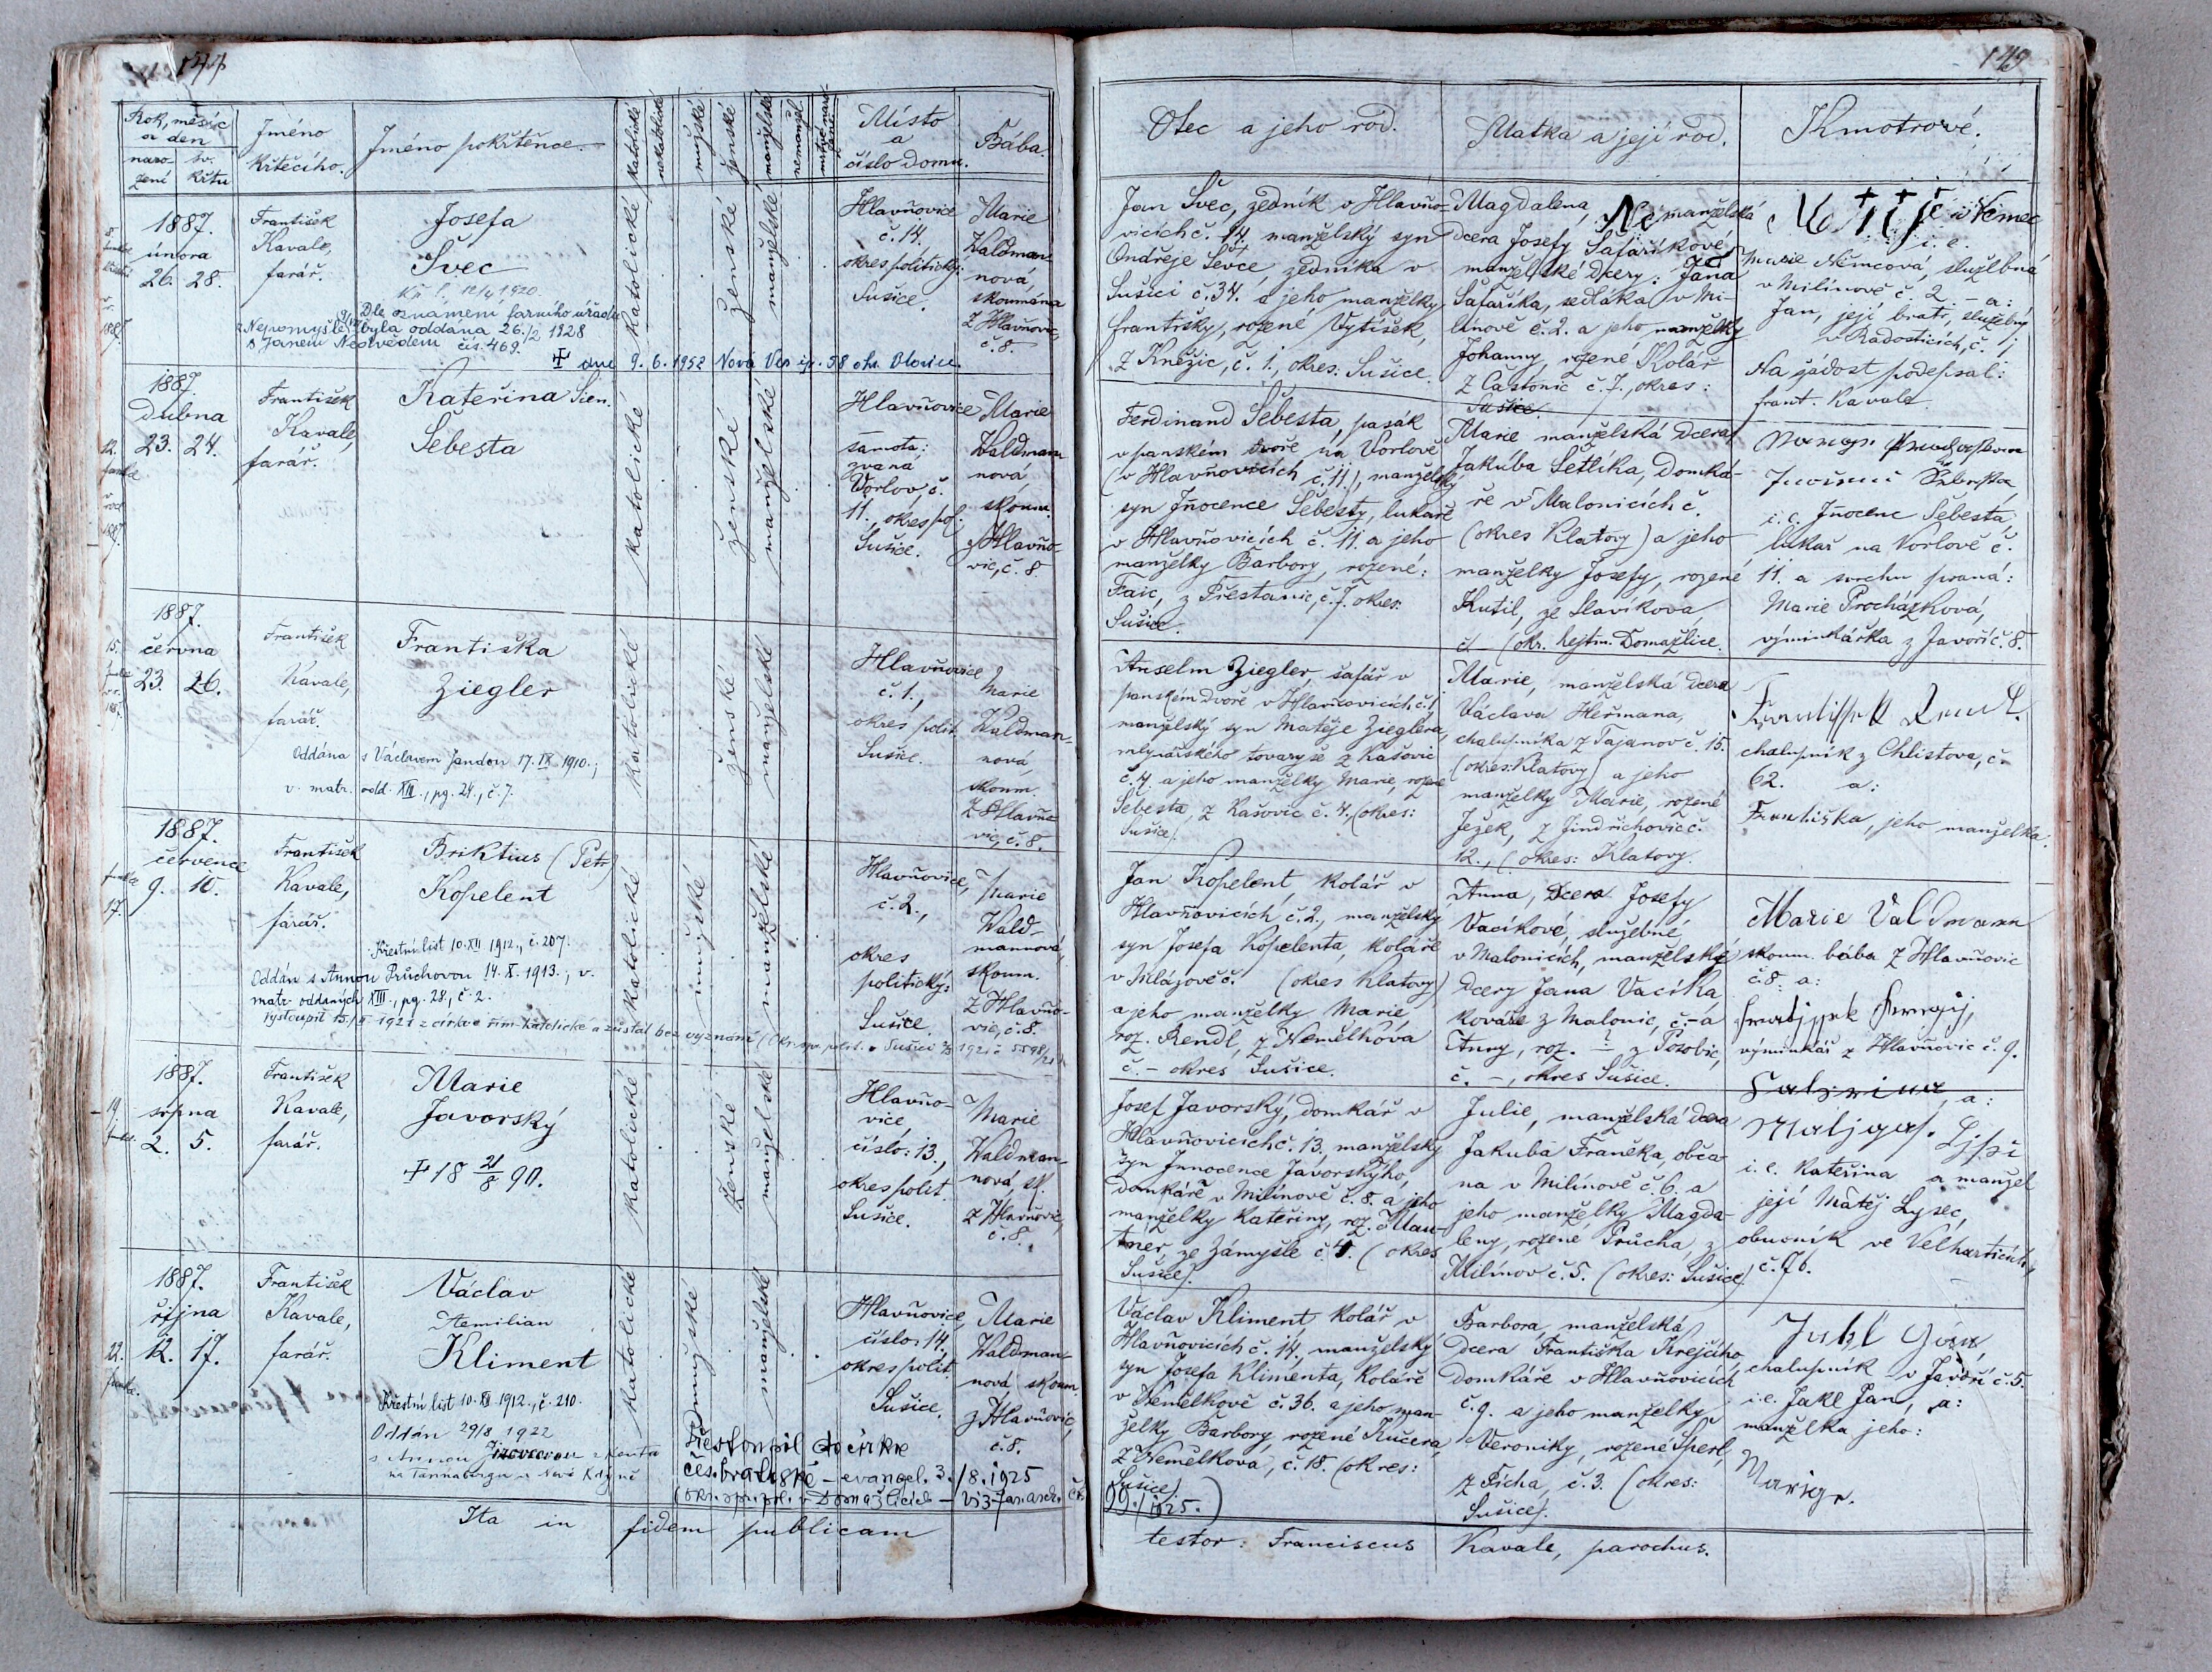 144
Rok, měsíc
a den
naro-
zení
sv.
křtu
Jméno
křtícího.
Jméno pokřtěnce.
katolické
nekatolické
mužské
ženské
manželské
nemanžel.
Místo
a
číslo domu.
Bába.
1887.
února
26. 28.
František
Kavale,
farář.
Josefa
Švec
12/4 1920.
Dle oznámení farního úřadu
byla oddána 26./2 1928
s Janem Nedvědem čís. 469.
dne 9. 6. 1952 Nová Ves čp. 38 okr. Blovice.
katolické
ženské
manželské
Hlavňovice
č. 14.
okres politický:
Sušice.
Marie
Waldman
nová,
skoumána
z Hlavňovic,
č. 8.
1887.
Dubna
23. 24.
František
Kavale,
farář.
Kateřina
Šebesta
katolické
ženské
manželské
Hlavňovice
samota:
zvaná
Vorlov, č.
11., okres pol.
Sušice.
Marie
Waldman
nová,
skoum.
z Hlavňo-
vic, č. 8.
1887.
června
23. 26.
František
Kavale,
farář.
Františka
Ziegler
Oddána s Václavem Jandou 17. IX 1910.;
v. matr. odd. XIII., pg. 24., č. 7.
katolické
ženské
manželské
Hlavňovice
č. 1.,
okres polit.
Sušice.
Marie
Waldman-
nová,
skoum.
z Hlavňo
vic, č. 8.
1887.
července
9. 10.
František
Kavale,
farář.
Briktius (Petr)
Kopelent
Křestní list 10. XII 1912., č. 207.
Oddán s Annou Průchovou 14. X. 1913., v.
matr. oddaných XIII., pg. 28., č. 2.
vystoupil 15./ 1921 z církve řím. katolické a zůstal bez vyznání
katolické
mužské
manželské
Hlavňovice,
č. 2.,
okres
politický:
Sušice.
Marie
Wald-
mannová,
skoum.
z Hlavňo-
vic, č. 8.
1887.
srpna
2. 5.
František
Kavale,
farář.
Marie
Javorský
18 21/8 90.
katolické
ženské
manželské
Hlavňo-
vice,
číslo: 13.,
okres polit.
Sušice.
Marie
Waldman-
nová, sk.
z Hlavňovic,
č. 8.
1887.
října
12. 17.
František
Kavale,
farář.
Václav
Aemilian
Kliment
Křestní list 10. XII 1912., č. 210.
Oddán 29/8 1922
s Annou
na Tannabergu u Nové Kdyně
katolické
mužské
manželské
Přestoupil do církve
čes. bratrské - evangel. 3./8. 1925
Hlavňovice,
číslo: 14.,
okres polit.
Sušice.
Marie
Waldman-
nová, skoum.
z Hlavňovic,
č. 8.
Ita in fidem publicam
149
Otec a jeho rod.
Matka a její rod.
Kmotrové.
Jan Švec, zedník v Hlavňo-
vicích č. 14. manželský syn
Ondřeje Ševce, zedníka v
Sušici č. 34. a jeho manželky
Františky, rozené Vytíšek,
z Kněžic, č. 1., okres: Sušice.
Magdalena, Ne manželská
dcera Josefy Šafaříkové,
manželské dcery: Jana
Šafaříka, sedláka v Mi-
línově č. 2. a jeho manželky
Johanny, rozené Kolář
z Častonic č. 7., okres:
Sušice.
Němec
i. e.
Marie Němcová, služebná
v Milínově č. 2. - a:
Jan, její bratr, služebný
v Radosticích, č. 1
Na žádost podepsal:
Frant. Kavale
Ferdinand Šebesta, pasák
v panském dvoře na Vorlově
(v Hlavňovicích č. 11.), manželský
syn Inocence Šebesty, lukaře
v Hlavňovicích č. 11. a jeho
manželky Barbory, rozené:
Faic, z Přestanic, č. 7. okres:
Sušice.
Marie manželská dcera
Jakuba Šetlíka, domká-
ře v Malonicích č.
(okres Klatovy) a jeho
manželky Josefy, rozené
Kutil, ze Slavíkova,
č. - (okr. hejtm. Domažlice.
i. e. Inocenc Šebesta,
lukař na Vorlově č.
11. a svrchu psaná:
Marie Procházková,
výminkářka z Javoří č. 8.
Anselm Ziegler, šafář v
panském dvoře v Hlavňovicích, č. 1
manželský syn Matěje Zieglera,
mlynářského tovaryše z Kašovic
č. 4. a jeho manželky Marie, rozené
Šebesta, z Kašovic č. 4. (okres:
Sušice).
Marie, manželská dcera
Václava Heřmana,
chalupníka z Tajanov č. 15.
(okres: Klatovy) a jeho
manželky Marie, rozené
Ježek, z Jindřichovic č.
12., (okres: Klatovy.
chalupník z Chlistova, č.
62. a:
Františka, jeho manželka.
Jan Kopelent, kolář v
Hlavňovicích č. 2., manželský
syn Josefa Kopelenta, koláře
v Mlázově č. (okres Klatovy)
a jeho manželky Marie,
roz. Rendl, z Nemělkova
č. - okres Sušice.
Anna, dcera Josefy
Vacíkové, služebné
v Malonicích, manželské
dcery Jana Vacíka,
kováře z Malonic, č. - a
Anny, roz. - ? z Pozobic,
č. -, okres Sušice.
Marie Valdmann
skoum. bába z Hlavňovic
č. 8. a:
výminkář z Hlavňovic č. 9.
Josef Javorský, domkář v
Hlavňovicích č. 13. manželský
syn Innocence Javorského,
domkáře v Milínově č. 8. a jeho
manželky Kateřiny, roz. Mau-
tner, ze Zámyšle č. 4. (okres
Sušice).
Julie, manželská dcera
Jakuba Franěka, obča
na v Milínově č. 6. a
jeho manželky Magda-
leny, rozené Průcha, z
Milínov č. 5. (okres: Sušice)
a:
i. e. Kateřina a manžel
její Matěj Lysec,
obuvník ve Velharticích,
č. 76.
Václav Kliment, kolář v
Hlavňovicích č. 14., manželský
syn Josefa Klimenta, koláře
v Nemělkově č. 36. a jeho man-
želky Barbory, rozené Kučera,
z Nemělkova, č. 18. (okres:
Sušice).
Barbora, manželská
dcera Františka Krejčího,
domkáře v Hlavňovicích
č. 9. a jeho manželky
Veroniky, rozené Šperl,
z Ticha, č. 3. (okres:
Sušice).
chalupník v Javoří č. 5.
i. e. Jakl Jan, a:
manželka jeho:
testor: Franciscus Kavale, parochus.